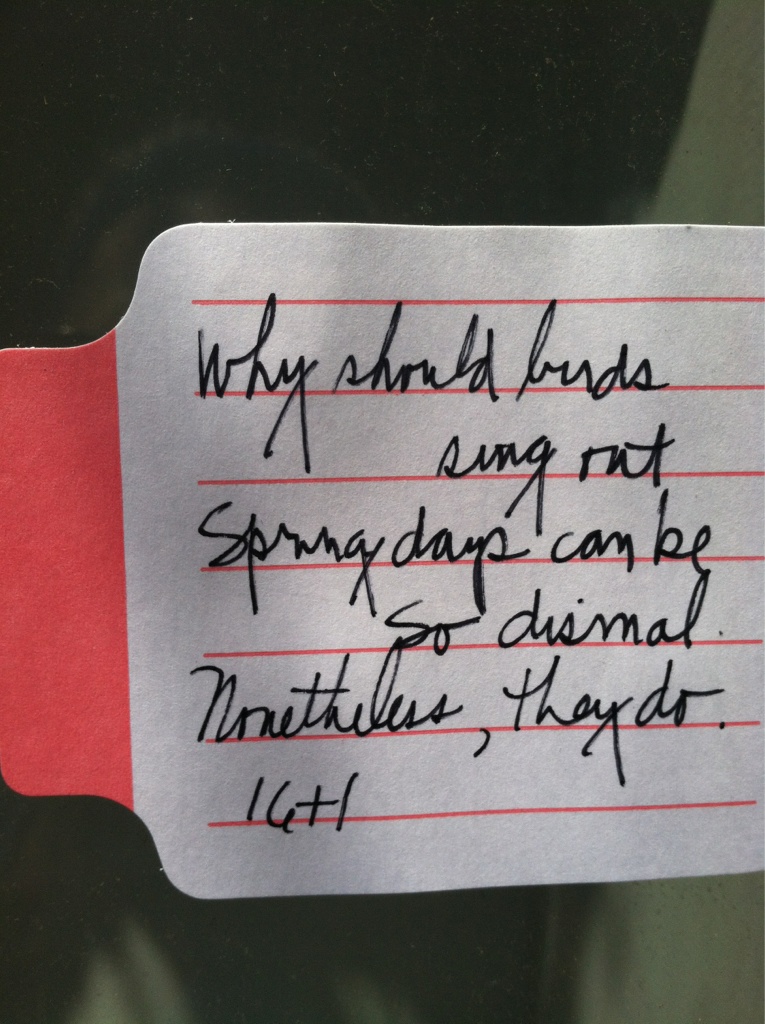 Why should birds
sing out
Spring days can be
So dismal.
Nonetheless, they do.
16+1